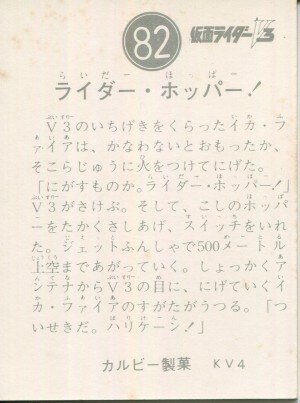 82
仮面ライダーV3
らいだー ほっぱー
ライダー・ホッパー!
V3のいちげきをくらったイカ・フ
ァイアは、かなわないとおもったか、
そこらじゅうに火をつけてにげた。
「にがすものか。ライダー・ホッパー!」
V3がさけぶ。そして、こしのホッパ
ーをたかくさしあげ、スイッチをいれ
た。ジェットふんしゃで500メートル
上空まであがっていく。しょっかくア
ンテナからV3の目に、にげていくイ
カ・ファイアのすがたがうつる。「つ
いせきだ。ハリケーン!」
カルビー製菓 KV4